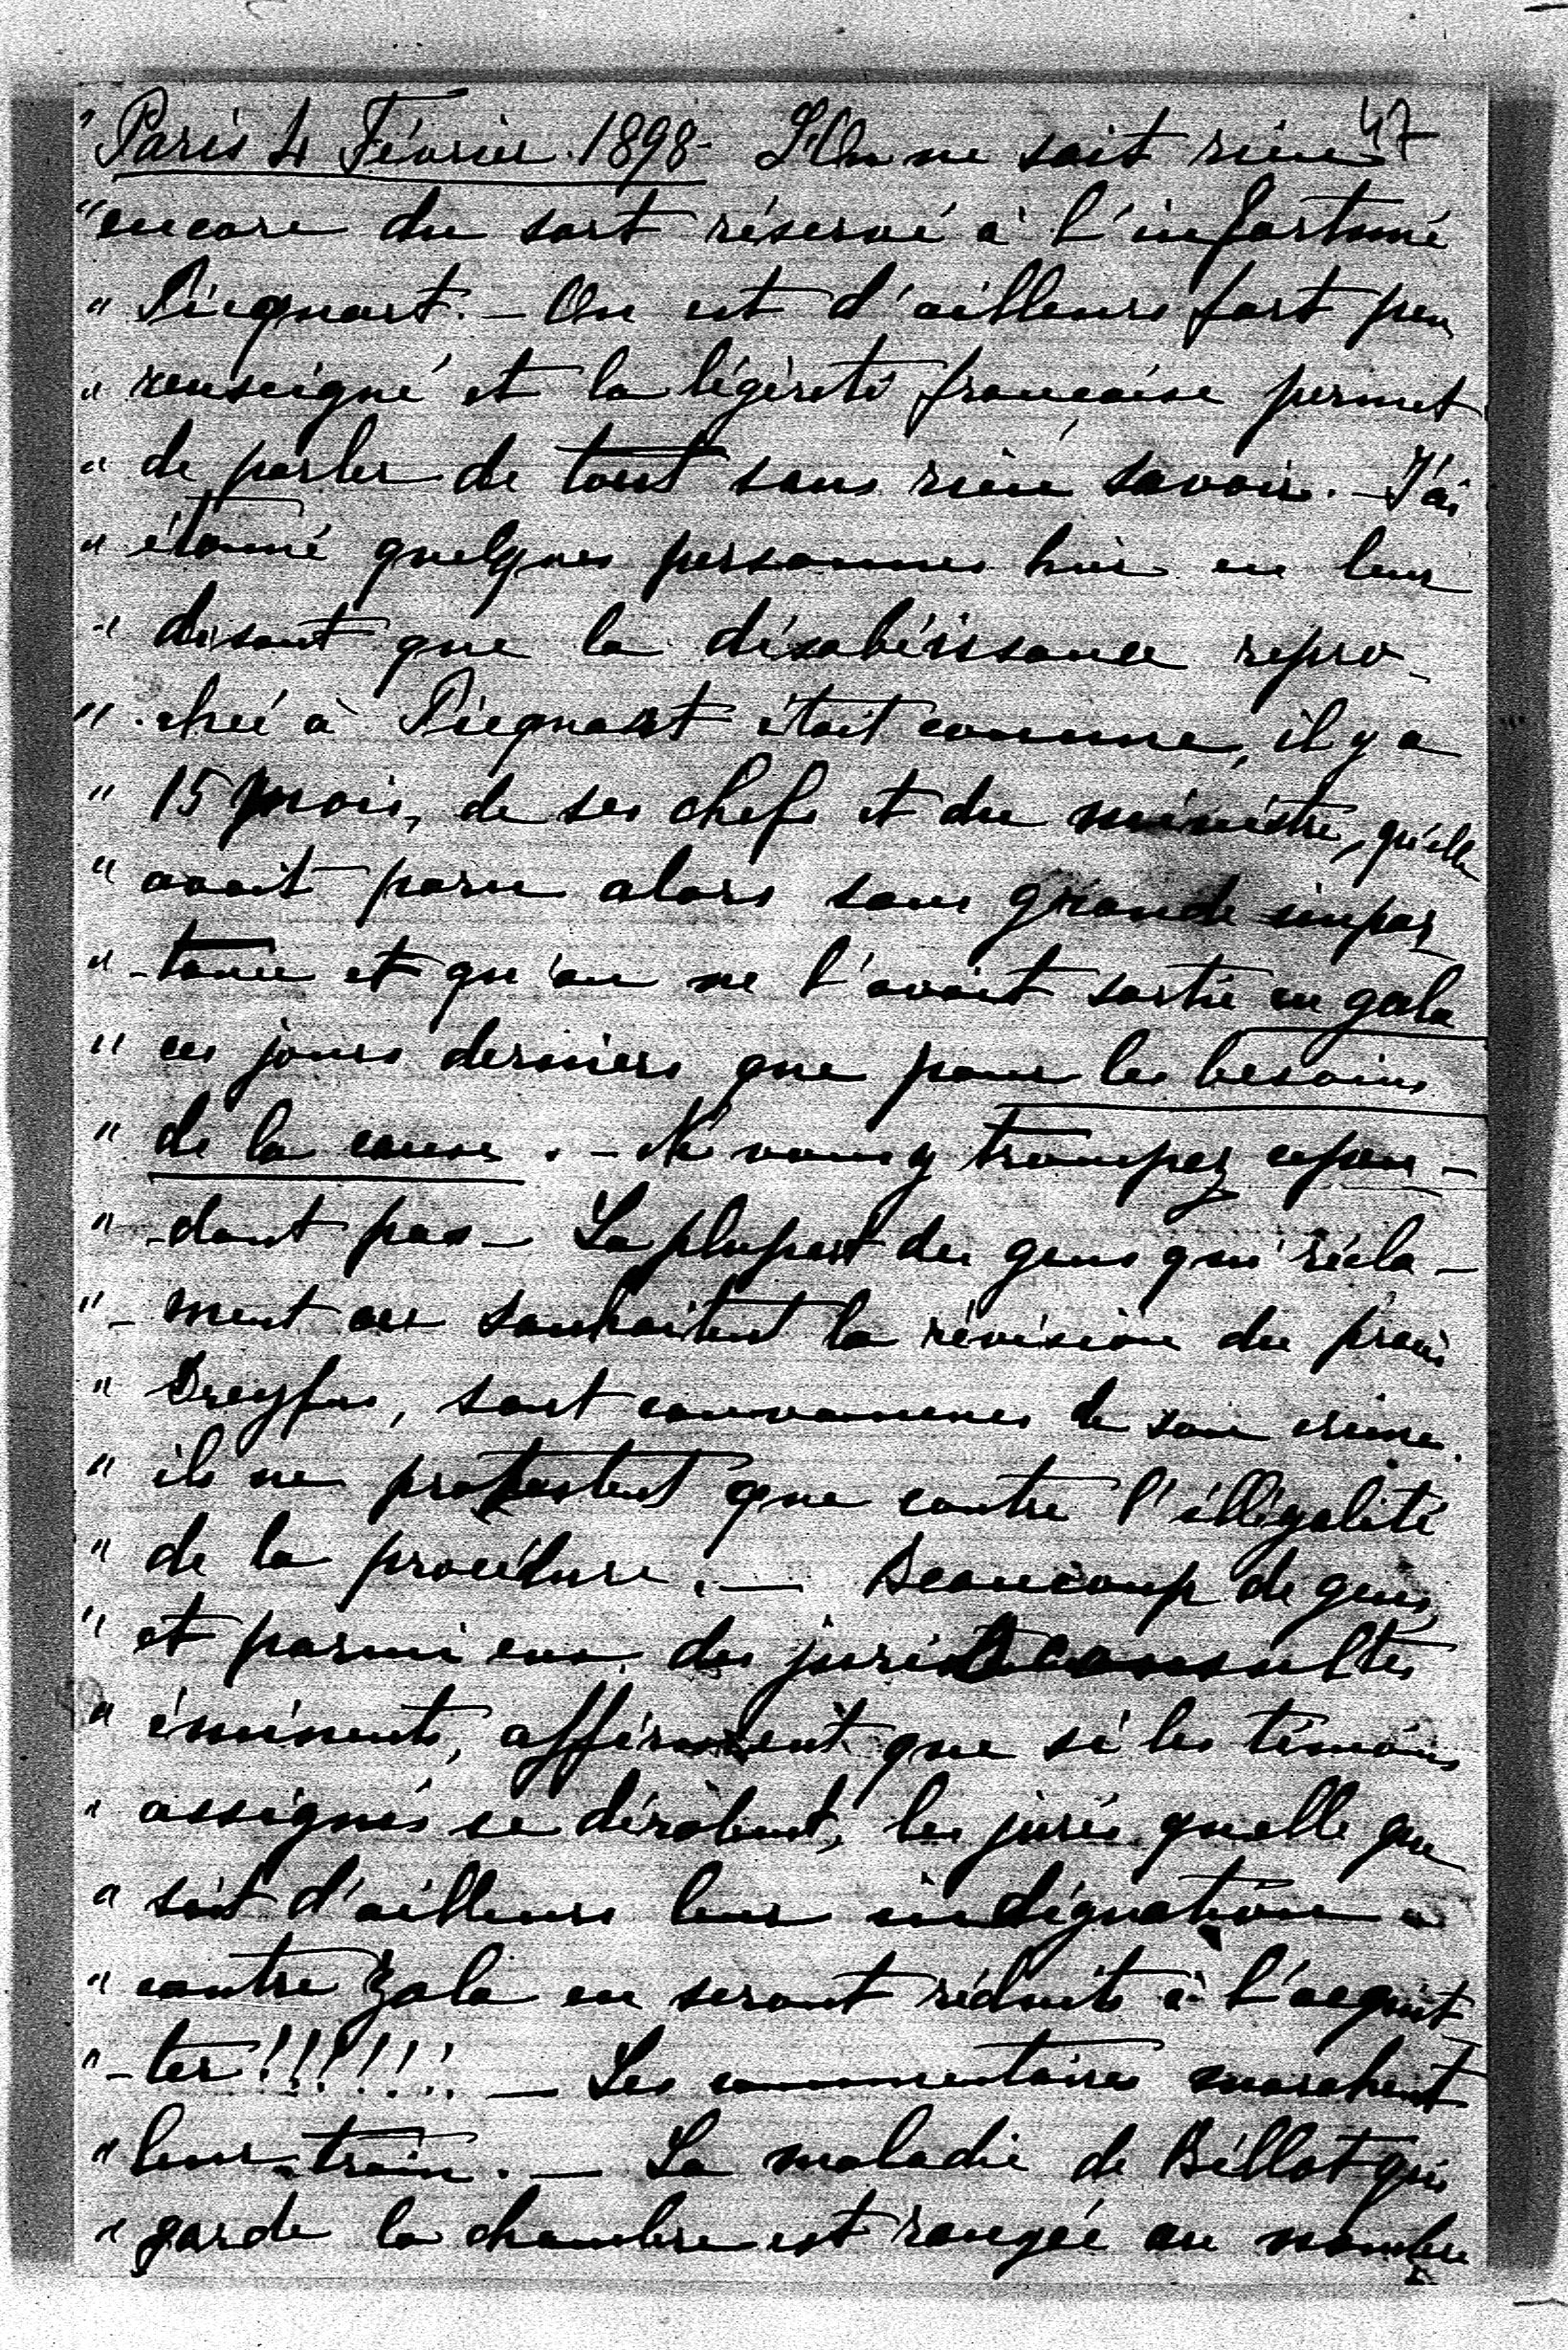 47
" Paris 4 Février. 1898 - L'On ne sait rien
" encore du sort réservé à l'infortuné
" Picquart. — On est d'ailleurs fort peu
" renseigné et la légèreté française permet
" de parler de tout sans rien savoir. — J'ai
" étonné quelques personnes hier en leur
" disant que la désobéissance repro-
" chée à Picquart était connue, il y a
" 15 mois, de ses chefs et du ministre, qu'elle
" avait paru alors sans grande impor
" -tance et qu'on ne l'avait sortie en gala
" ces jours derniers que pour les besoins
" de la cause. — Ne vous y trompez cepen-
" -dant pas — La plupart des gens qui récla-
" -ment ou souhaitent la révision du procès
" Dreyfus, sont convaincus de son crime.
" ils ne protestent que contre l'illégalité
" de la procédure. — Beaucoup de gens,
" et parmi eux des jurisconsultes
" éminents, affirment que si les témoins
" assignés se dérobent, les jurés quelle que
" soit d'ailleurs leur indignation
" contre Zola en seront réduits à l'acquit
" -ter !!!!!!! — Les commentaires marchent
" leur train. — La maladie de Billot qui
" garde la chambre est rangée au nombre